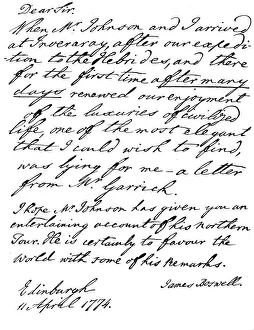 Dear Sir.
When Mr. Johnson and I arrived
at Inveraray, after our expedi-
tion to the Hebrides, and there
for the first time after many
days renewed our enjoyment
of the luxuries of civilized
life, one of the most elegant
that I could wish to find,
was lying for me – a letter
from Mr. Garrick.
I hope Mr Johnson has given you an
entertaining account of his Northern
Tour. He is certainly to favour the
World with some of his Remarks.
James Boswell.
Edinburgh
11 April 1774.